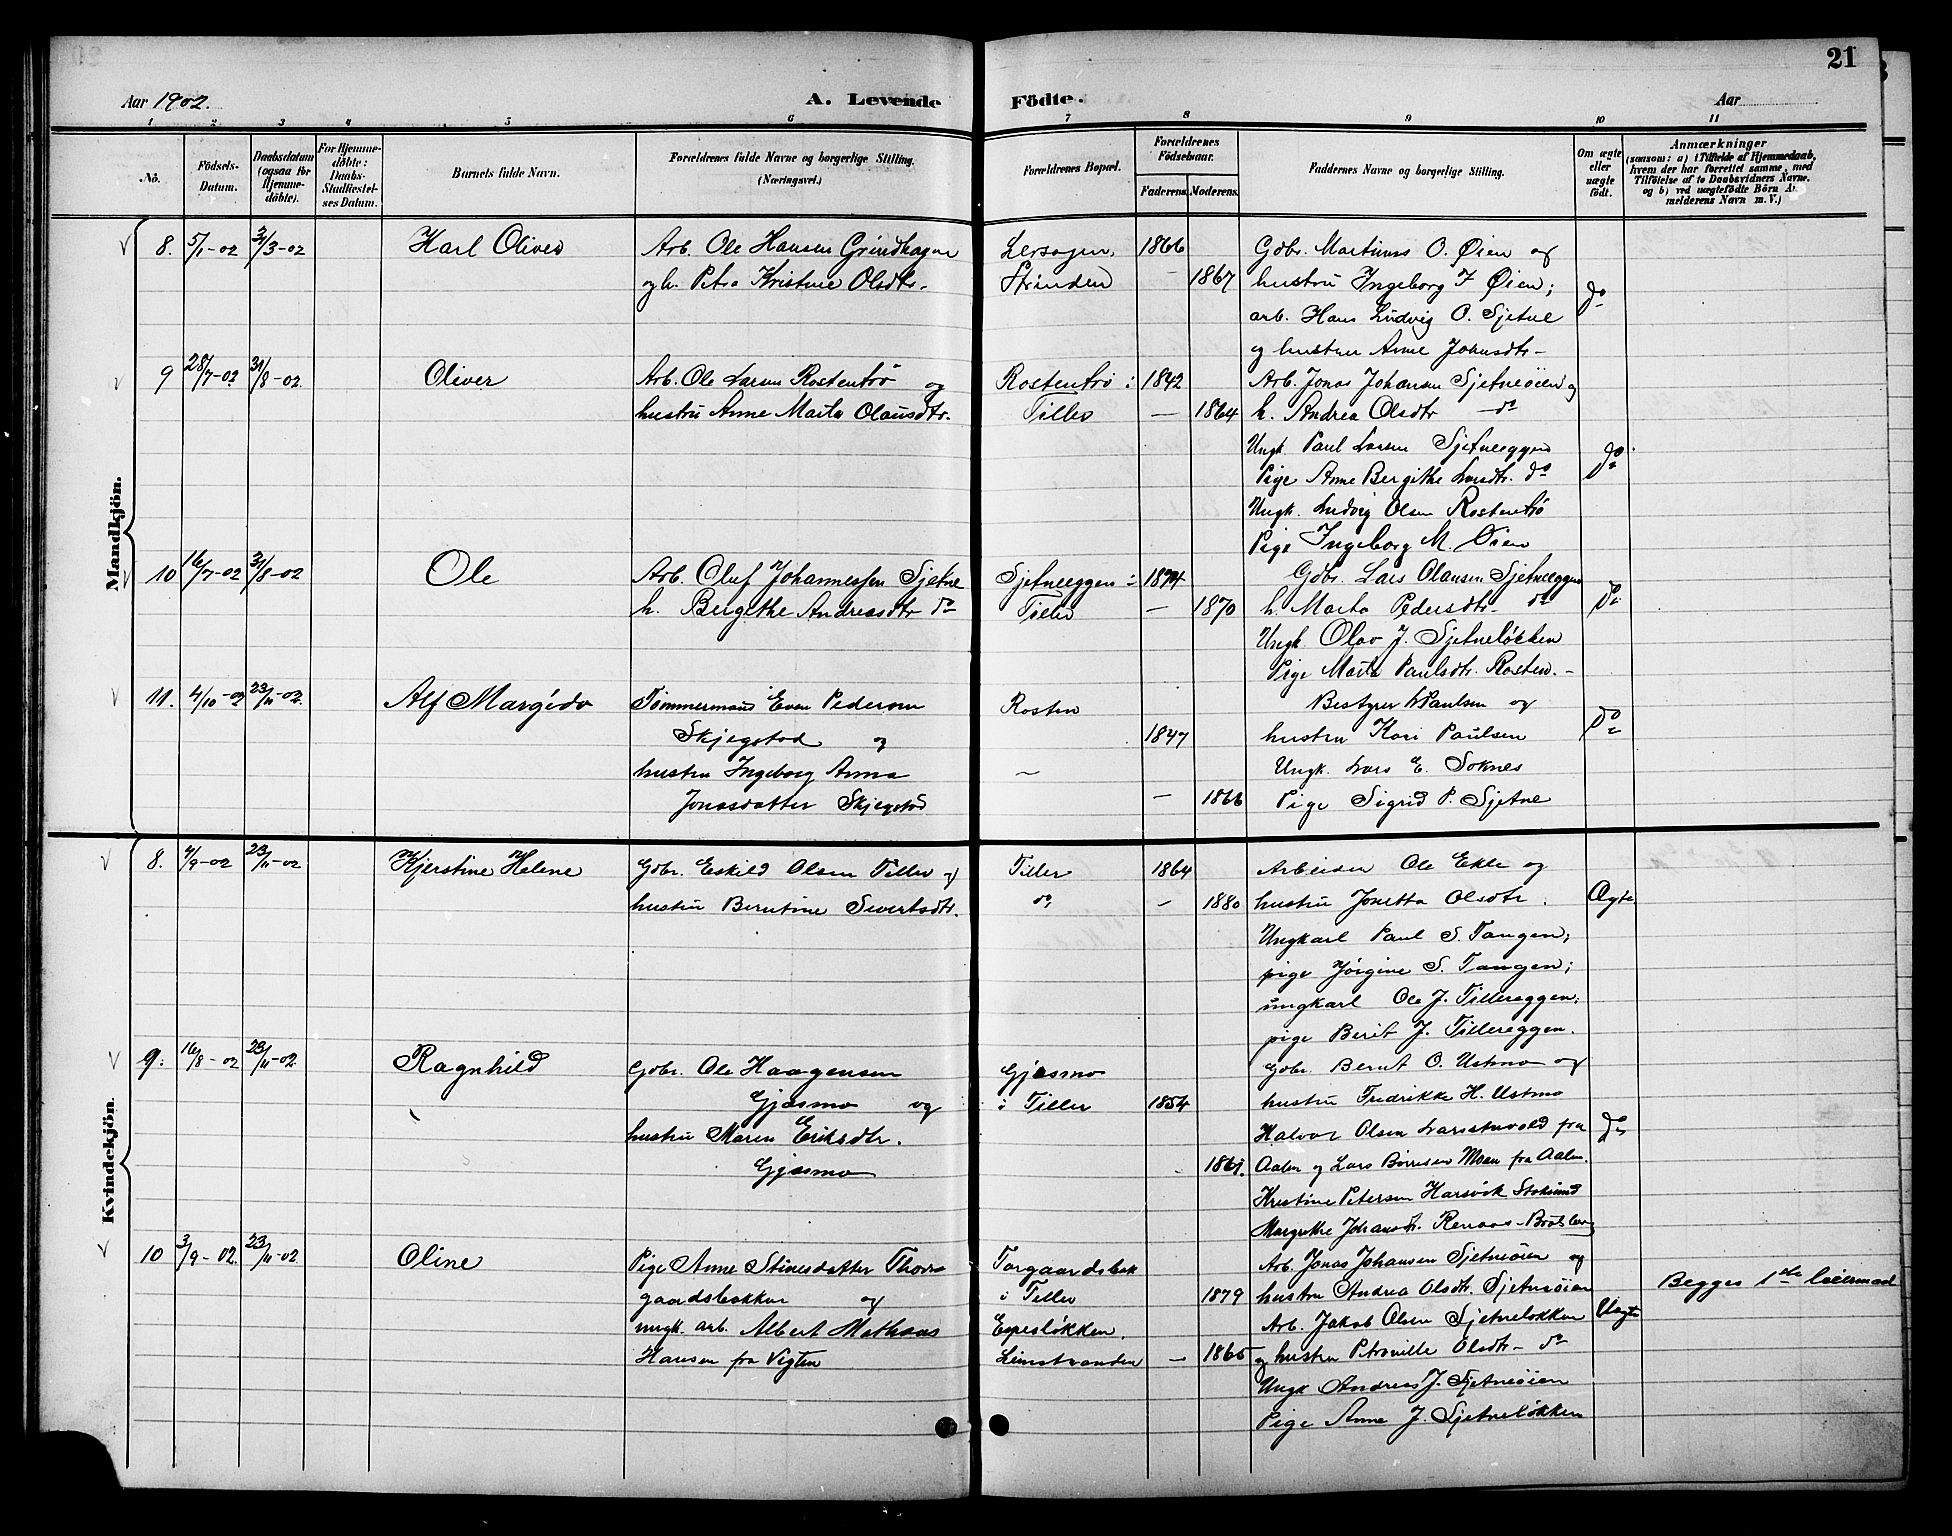 21
Aar 1902.
A. Levende Födte.
Aar
1 2 3 4 5 6 7 8 9 10 11
No.
Födsels-Datum.
Daabsdatum (ogsaa for Hjemmedöbte).
For Hjemmedöbte: Daabs-Stadfæstelses Datum.
Barnets fulde Navn.
Forældrenes fulde Navne og borgerlige Stilling.
(Næringsvei.)
Forældrenes Bopæl.
Forældrenes Födselsaar.
Faderens. Moderens.
Faddernes Navne og borgerlige Stilling.
Om ægte eller uægte födt.
Anmærkninger
(saasom: a) i Tilfælde af Hjemmedaab, hvem der har forrettet samme, med Tilföielse af to Daabsvidners Navne, og b) ved uægtefödte Börn Anmelderens Navn m. V.)
Mandkjön.
8. 5/1-02 31/3-02 Karl Oliver Arb. Ole Hansen Grindhagen Lersogen, 1866 Gdbr. Martinus O. Øien og
og h. Petra Kristine Olsdtr. Strinden - 1867 hustru Ingeborg J Øien; do
arb. Hans Ludvig O. Sjetne
og hustru Anne Johnsdtr-
9 28/7-02 31/8-02 Oliver Arb. Ole Larsen Rostentrø og Rostentrø i 1842 Arb. Jonas Johansen Sjetneöien og
hustru Anne Marta Olausdtr. Tiller — 1864 h. Andrea Olsdtr — do
Ungk. Paul Larsen Sjetneeggen do
Pige Anne Bergithe Larsdtr. do
Ungk. Ludvig Olsen Rostentrø
Pige Ingeborg M. Øien
10 16/7-02 31/8-02 Ole Arb. Oluf Johannessen Sjetne Sjetneeggen i 1874 Gdbr. Lars Olausen Sjetneeggen
h. Bergithe Andreasdtr do Tiller — 1870 h. Marta Pedersdtr- do do
Ungk. Olav J. Sjetneløkken
Pige Marta Paulsdtr. Rosten.-
11. 4/10-02 23/11-02. Alf Margido Tømmermand Even Pedersen Rosten Bestyrer Paulsen og
Skjegstad og 1847 hustru Kari Paulsen do
hustru Ingeborg Anna — Ungk. Lars E. Soknes
Jonasdatter Skjegstad — 1866 Pige Sigrid P. Sjetne
Kvindekjön.
8. /9-02 23/11-02 Kjerstine Helene Gdbr. Eskild Olsen Tiller og Tiller 1864 Arbeider Ole Ekle og
hustru Berntine Sivertsdtr. do, — 1880 hustru Jonetta Olsdtr. Ægte
Ungkarl Paul S. Tangen;
pige Jørgine S. Tangen;
ungkarl Ole J. Tillereggen;
pige Berit J. Tillereggen.
9. 16/8-02 23/11-02. Ragnhild Gdbr. Ole Haagensen Gjæsmo Gdbr. Bernt O. Ustmo og
Gjæsmo og i Tiller 1854 hustru Fredrikke H. Ustmo
hustru Maren Eriksdtr. Halvor Olsen fra do
Gjæsmo - 1861. Aalen og Lars Børresen Moen fra Aalen.
Kristine Petersen Harsvik Stoksund
Margrethe Johansdtr. Renaas-
10 3/9-02. 23/11-02. Oline Pige Anne Stinesdatter Thora Torgaardsbak Arb. Jonas Johansen Sjetneöien og
gaardsbakken og i Tiller 1879 hustru Andrea Olsdtr. Sjetneöien Begges 1ste leiermaal
ungk. arb. Albert Mathæas Espesløkken. Arb. Jakob Olsen Sjetneløkken Uægte
Hansen fra Vigten Leinstranden — 1865 og hustru Petronille Olsdtr- do
Ungk Andreas J. Sjetneöien
Pige Anne J. Sjetneløkken